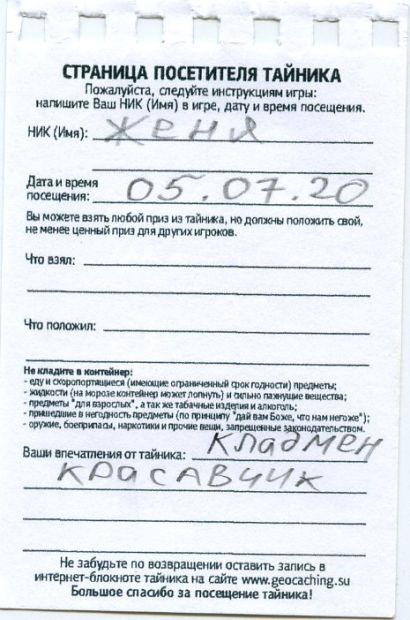 СТРАНИЦА ПОСЕТИТЕЛЯ ТАЙНИКА
Пожалуйста, следуйте инструкциям игры:
напишите Ваш НИК (Имя) в игре, дату и время посещения.
НИК (Имя): Женя
Дата и время
посещения: 05.07.20
Вы можете взять любой приз из тайника, но должны положить свой,
не менее ценный приз для других игроков.
Что взял:
Что положил:
Не кладите в контейнер:
- еду и скоропортящиеся (имеющие ограниченный срок годности) предметы;
- жидкости (на морозе контейнер может лопнуть) и сильно пахнущие вещества;
- предметы "для взрослых", а так же табачные изделия и алкоголь;
- пришедшие в негодность предметы (по принципу "дай вам Боже, что нам негоже");
- оружие, боеприпасы, наркотики и прочие вещи, запрещенные законодательством.
Ваши впечатления от тайника: кладмен
красавчик
Не забудьте по возвращении оставить запись в
интернет-блокноте тайника на сайте www.geocaching.su
Большое спасибо за посещение тайника!